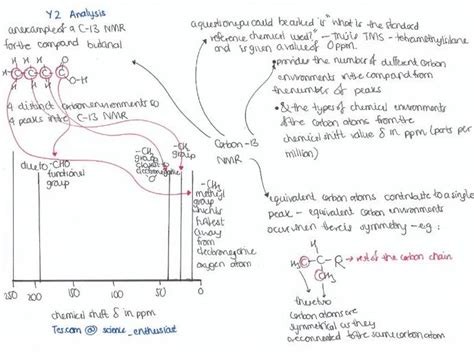 Y2 Analysis
an example of a C-13 NMR
for the compound butanal
H H H H
C C C C
O-H
4 distinct carbon environments so
4 peaks in the C-13 NMR
due to -CHO
functional
group
-CH2
group
closest to
-CH2
group
-CH3
methyl
group
which is
furthest
away
from
electronegative
oxygen atom
250 200 150 100 50 0
chemical shift δ in ppm
Tes.com @ science_enthusiast
a question you could be asked is "what is the standard
reference chemical used?" - This is TMS - tetramethylsilane
and is given a value of 0ppm.
Carbon-13
NMR
• provides the number of different carbon
environments in the compound from
the number of peaks
• & the types of chemical environments
of the carbon atoms from the
chemical shift value δ in ppm (parts per
million)
equivalent carbon atoms contribute to a single
peak - equivalent carbon environments
occur when there is symmetry - e.g:
H
H3C - C - R → rest of the carbon chain
CH3
these two
carbon atoms are
symmetrical as they
are connected to the same carbon atom